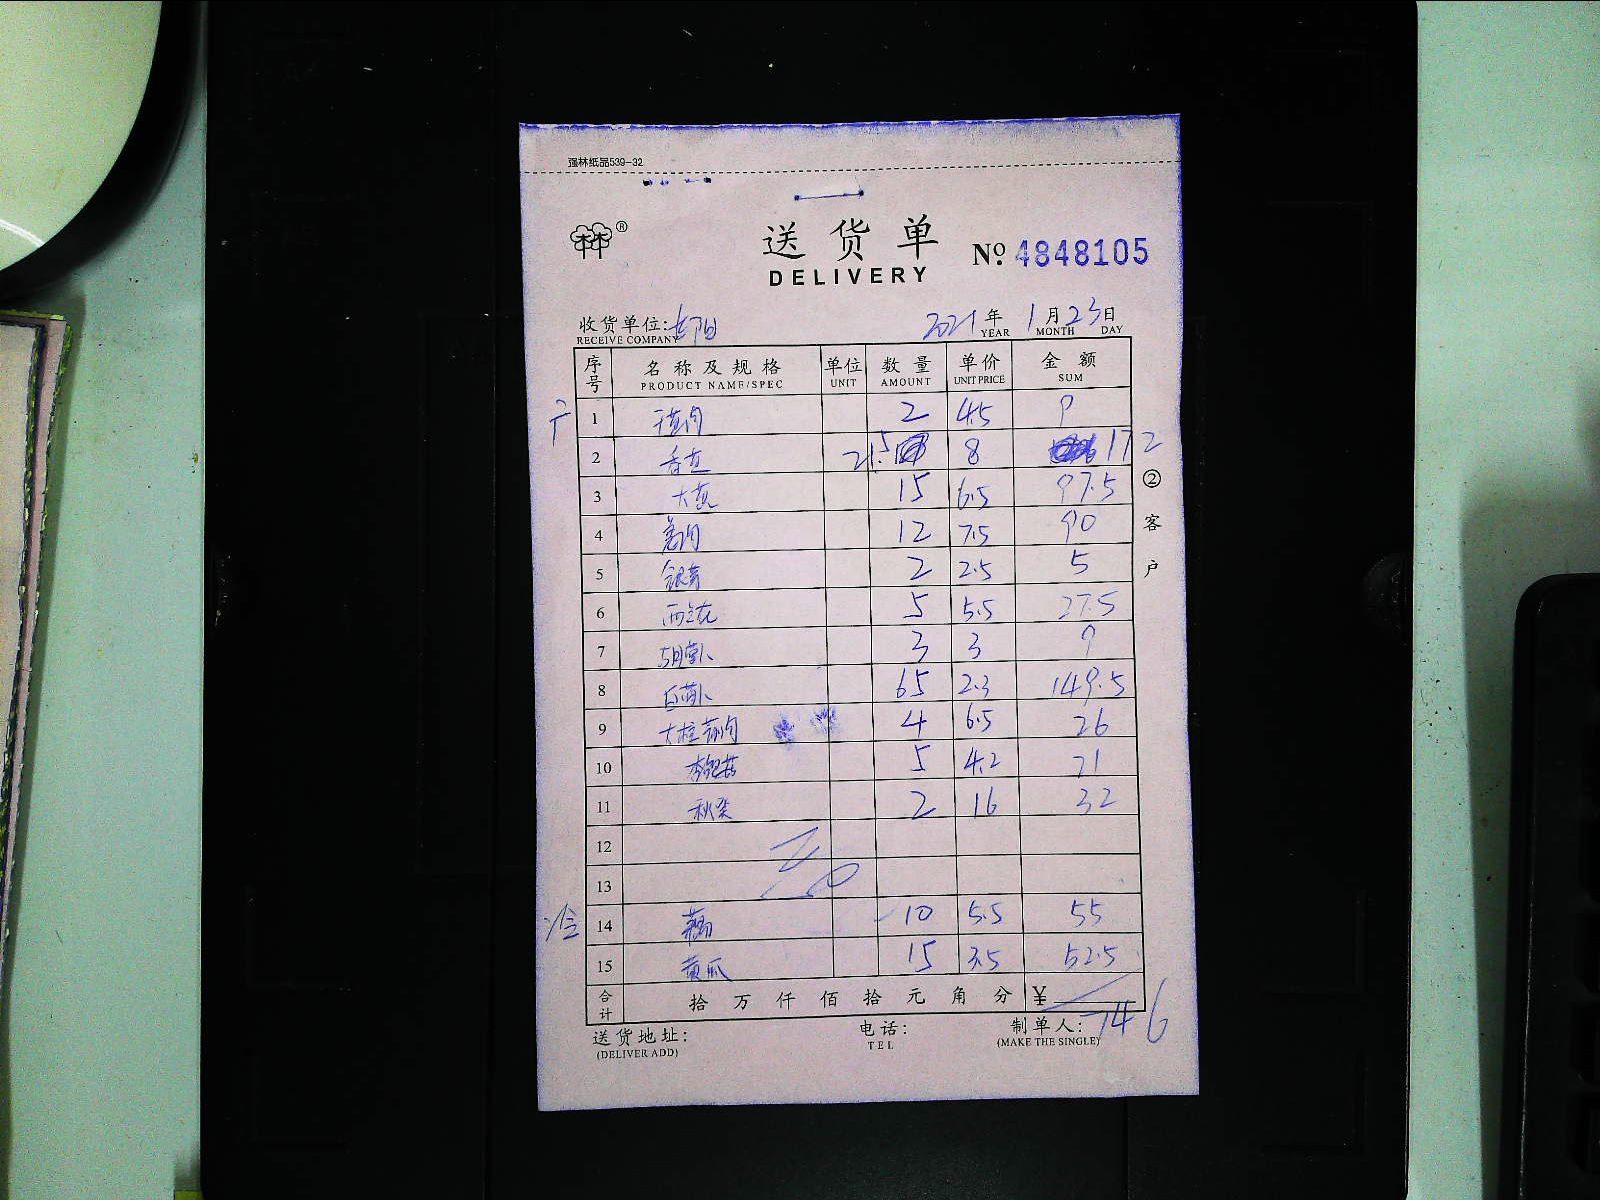 强林纸品539-32
林®
送货单
DELIVERY
No. 4848105
收货单位: 2021年1月23日
RECEIVE COMPANY YEAR MONTH DAY
序号 名称及规格 单位 数量 单价 金额
PRODUCT NAME/SPEC UNIT AMOUNT UNIT PRICE SUM
1 2 4.5 9
2 21.5 8 172
3 15 6.5 97.5
4 12 7.5 90
5 2 2.5 5
6 西兰花 5 5.5 27.5
7 3 3 9
8 白萝卜 65 2.3 149.5
9 4 6.5 26
10 5 4.2 21
11 秋葵 2 16 32
12
13
冷 14 10 5.5 55
15 黄瓜 15 3.5 52.5
合计 拾万仟佰拾元角分 ¥ 746
送货地址: 电话: 制单人:
(DELIVER ADD) TEL (MAKE THE SINGLE)
②客户